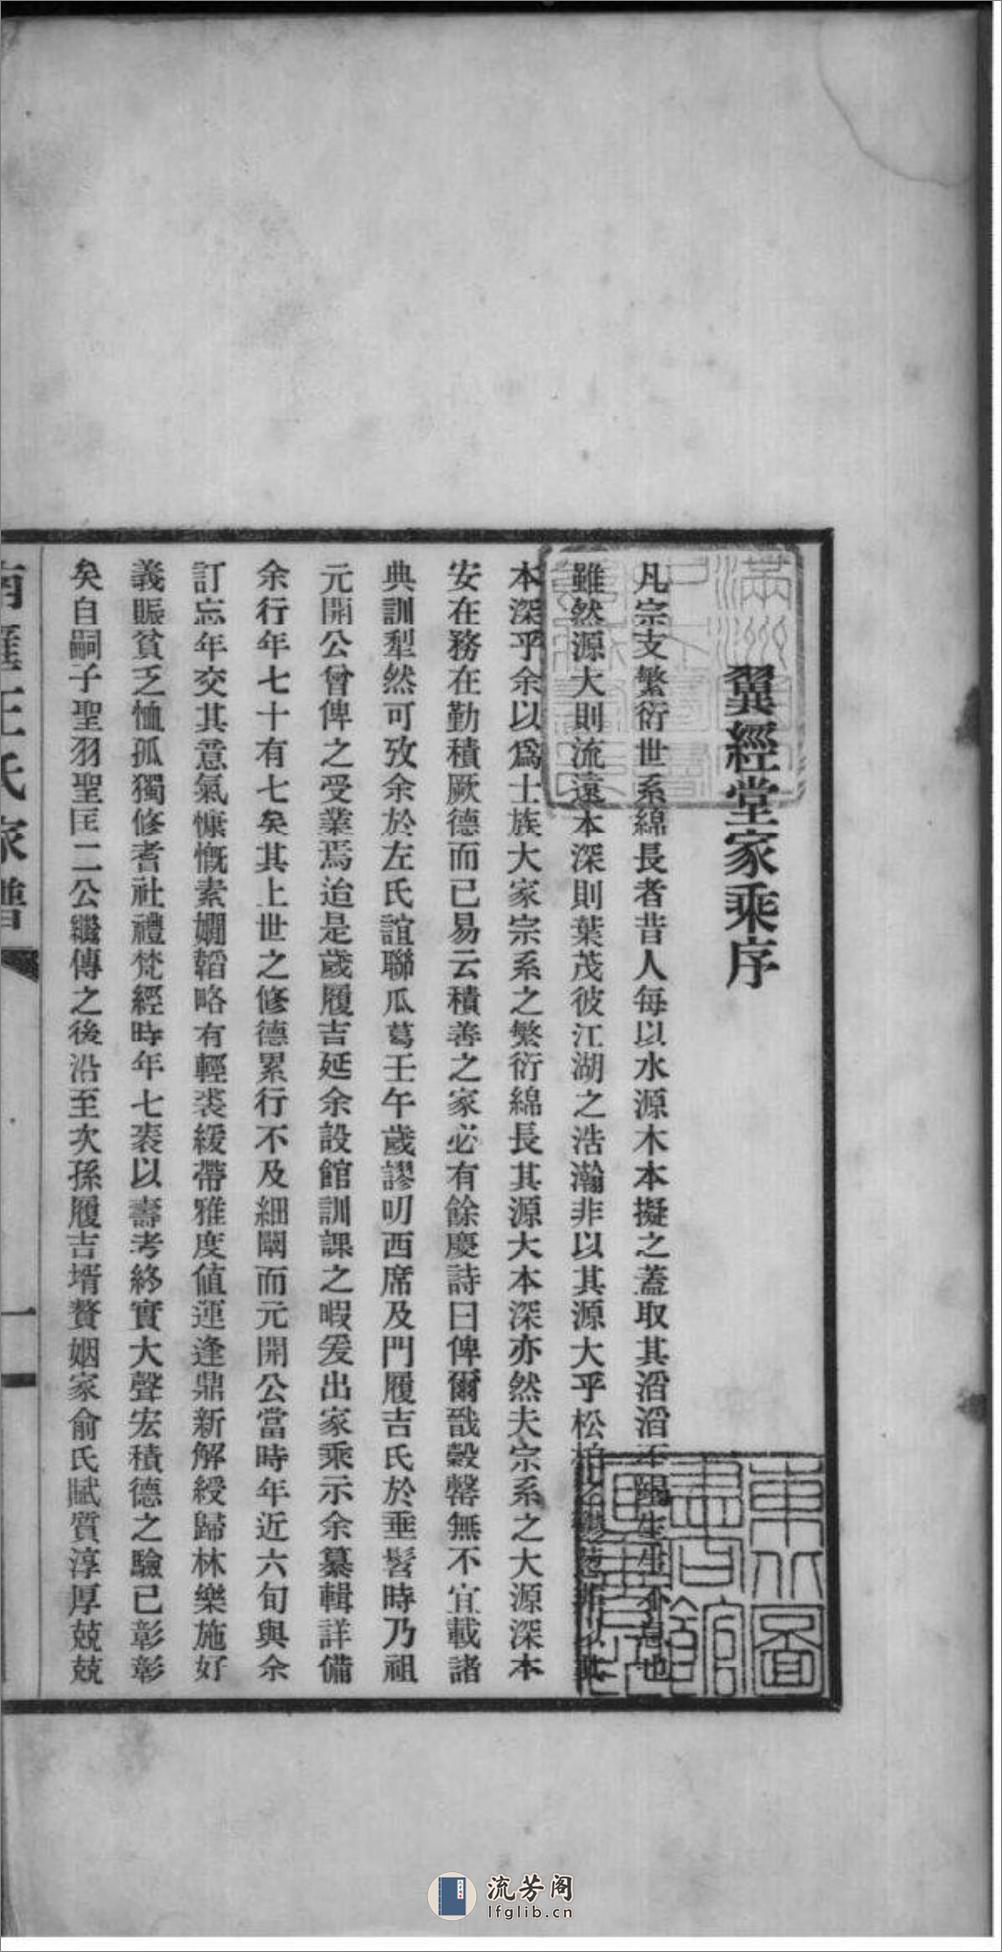 翼經堂家乘序
凡宗支繁衍世系綿長者昔人每以水源木本擬之蓋取其滔滔不竭生生不息也
雖然源大則流遠本深則葉茂彼江湖之浩瀚非以其源大乎松柏之非以其
本深乎余以爲士族大家宗系之繁衍綿長其源大本深亦然夫宗系之大源深本
安在務在勤積厥德而已易云積善之家必有餘慶詩曰俾爾戩穀罄無不宜載諸
典訓犁然可攷余於左氏誼聯瓜葛壬午歲謬叨西席及門履吉氏於垂髫時乃祖
元開公曾俾之受業焉迨是歲履吉延余設館訓課之暇爰出家乘示余纂輯詳備
余行年七十有七矣其上世之修德累行不及細闡而元開公當時年近六旬與余
訂忘年交其意氣慷慨素嫻韜略有輕裘緩帶雅度値運逢鼎新解綬歸林樂施好
義賑貧乏恤孤獨修耆社禮梵經時年七袠以壽考終實大聲宏積德之驗已彰彰
矣自嗣子聖羽聖匡二公繼傳之後沿至次孫履吉壻贅姻家俞氏賦質淳厚兢兢
王氏家譜
一
流芳阁
lfglib.cn